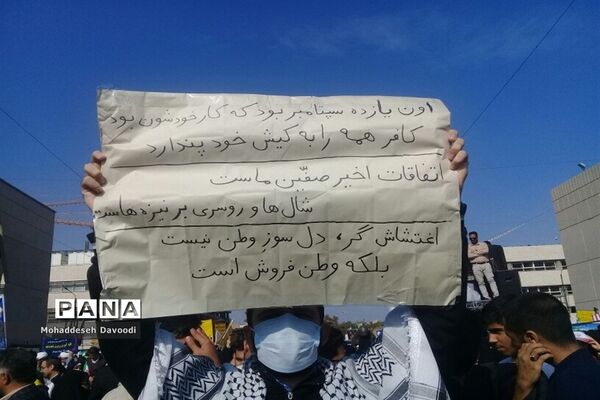 اون یازده سپتامبر بود که کار خودشون بود
کافر همه را به کیش خود پندارد
اتفاقات اخیر صفّین ماست
شال ها و روسری بر نیزه هاست
اغتشاش گر، دل سوز وطن نیست
بلکه وطن فروش است
PANA
Mohaddeseh Davoodi